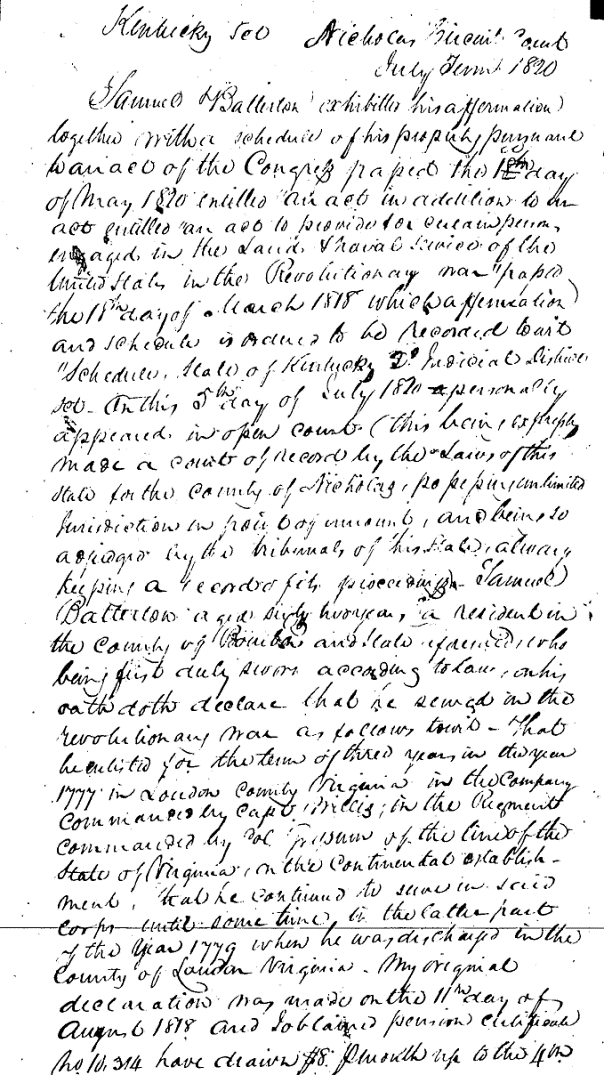 Kentucky Sct Nicholas Circuit Court
July Term 1820
Samuel Batterton exhibited his affirmation
together with a schedule of his property pursuant
to an act of the Congress passed the 1st day
of May 1820 entitled "an act in addition to an
act entitled "an act to provide for certain persons
engaged in the Land & naval service of the
United States in the Revolutionary war" passed
the 18th day of March 1818 which affirmation
and schedule is ordered to be recorded towit
"Schedule, State of Kentucky 2d Judicial District
sct. On this 5th day of July 1820 personally
appeared in open court (this being expressly
made a court of record by the Laws of this
state for the county of Nicholas, possessing unlimited
Jurisdiction in point of amount, and being so
adjudged by the tribunals of this State, always
keeping a record of its proceedings - Samuel
Batterton aged sixty two years, a resident in
the county of Bourbon and state aforesaid, who
being first duly sworn according to law, on his
oath doth declare that he served in the
revolutionary war as follows towit - That
he enlisted for the term of three years in the year
1777 in Loudon County Virginia in the Company
commanded by Capt Willis, in the Regiment
commanded by Col of the line of the
State of Virginia, on the Continental establish-
ment, that he continued to serve in said
corps until some time in the latter part
of the year 1779 when he was discharged in the
county of Loudon Virginia. My original
declaration was made on the 11th day of
August 1818 and I obtained pension certificate
No 10.314 have drawn $8 P month up to the 4th